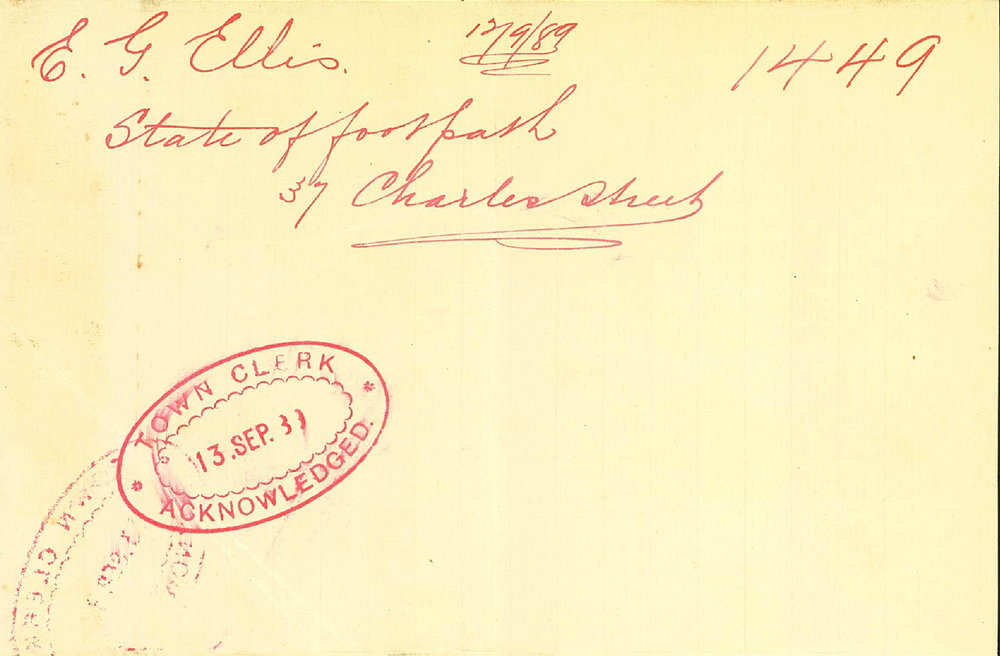 E. G. Ellis. 12/9/89 1449
State of footpath
37 Charles Street
TOWN CLERK
13. SEP.
ACKNOWLEDGED.